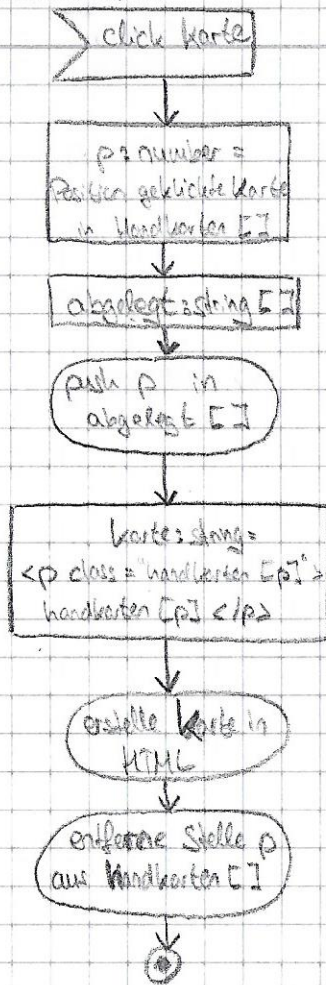 click Karte
p: number =
Position geklickte Karte
in Handkarten []
abgelegt: string []
push p in
abgelegt []
karte: string =
<p class="handkarten [p]">
handkarten [p] </p>
erstelle Karte in
HTML
entferne Stelle p
aus Handkarten []